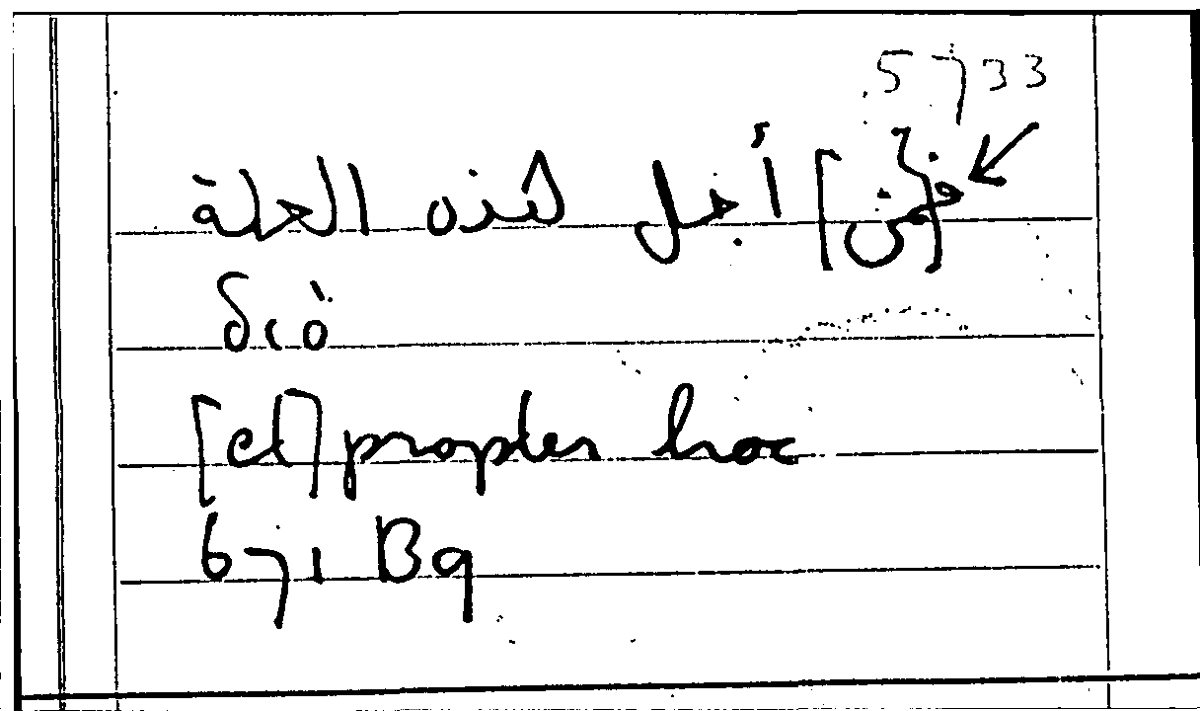 5733
[فمن] أجل هذه العلة
διὸ
[et] propter hoc
671 B9